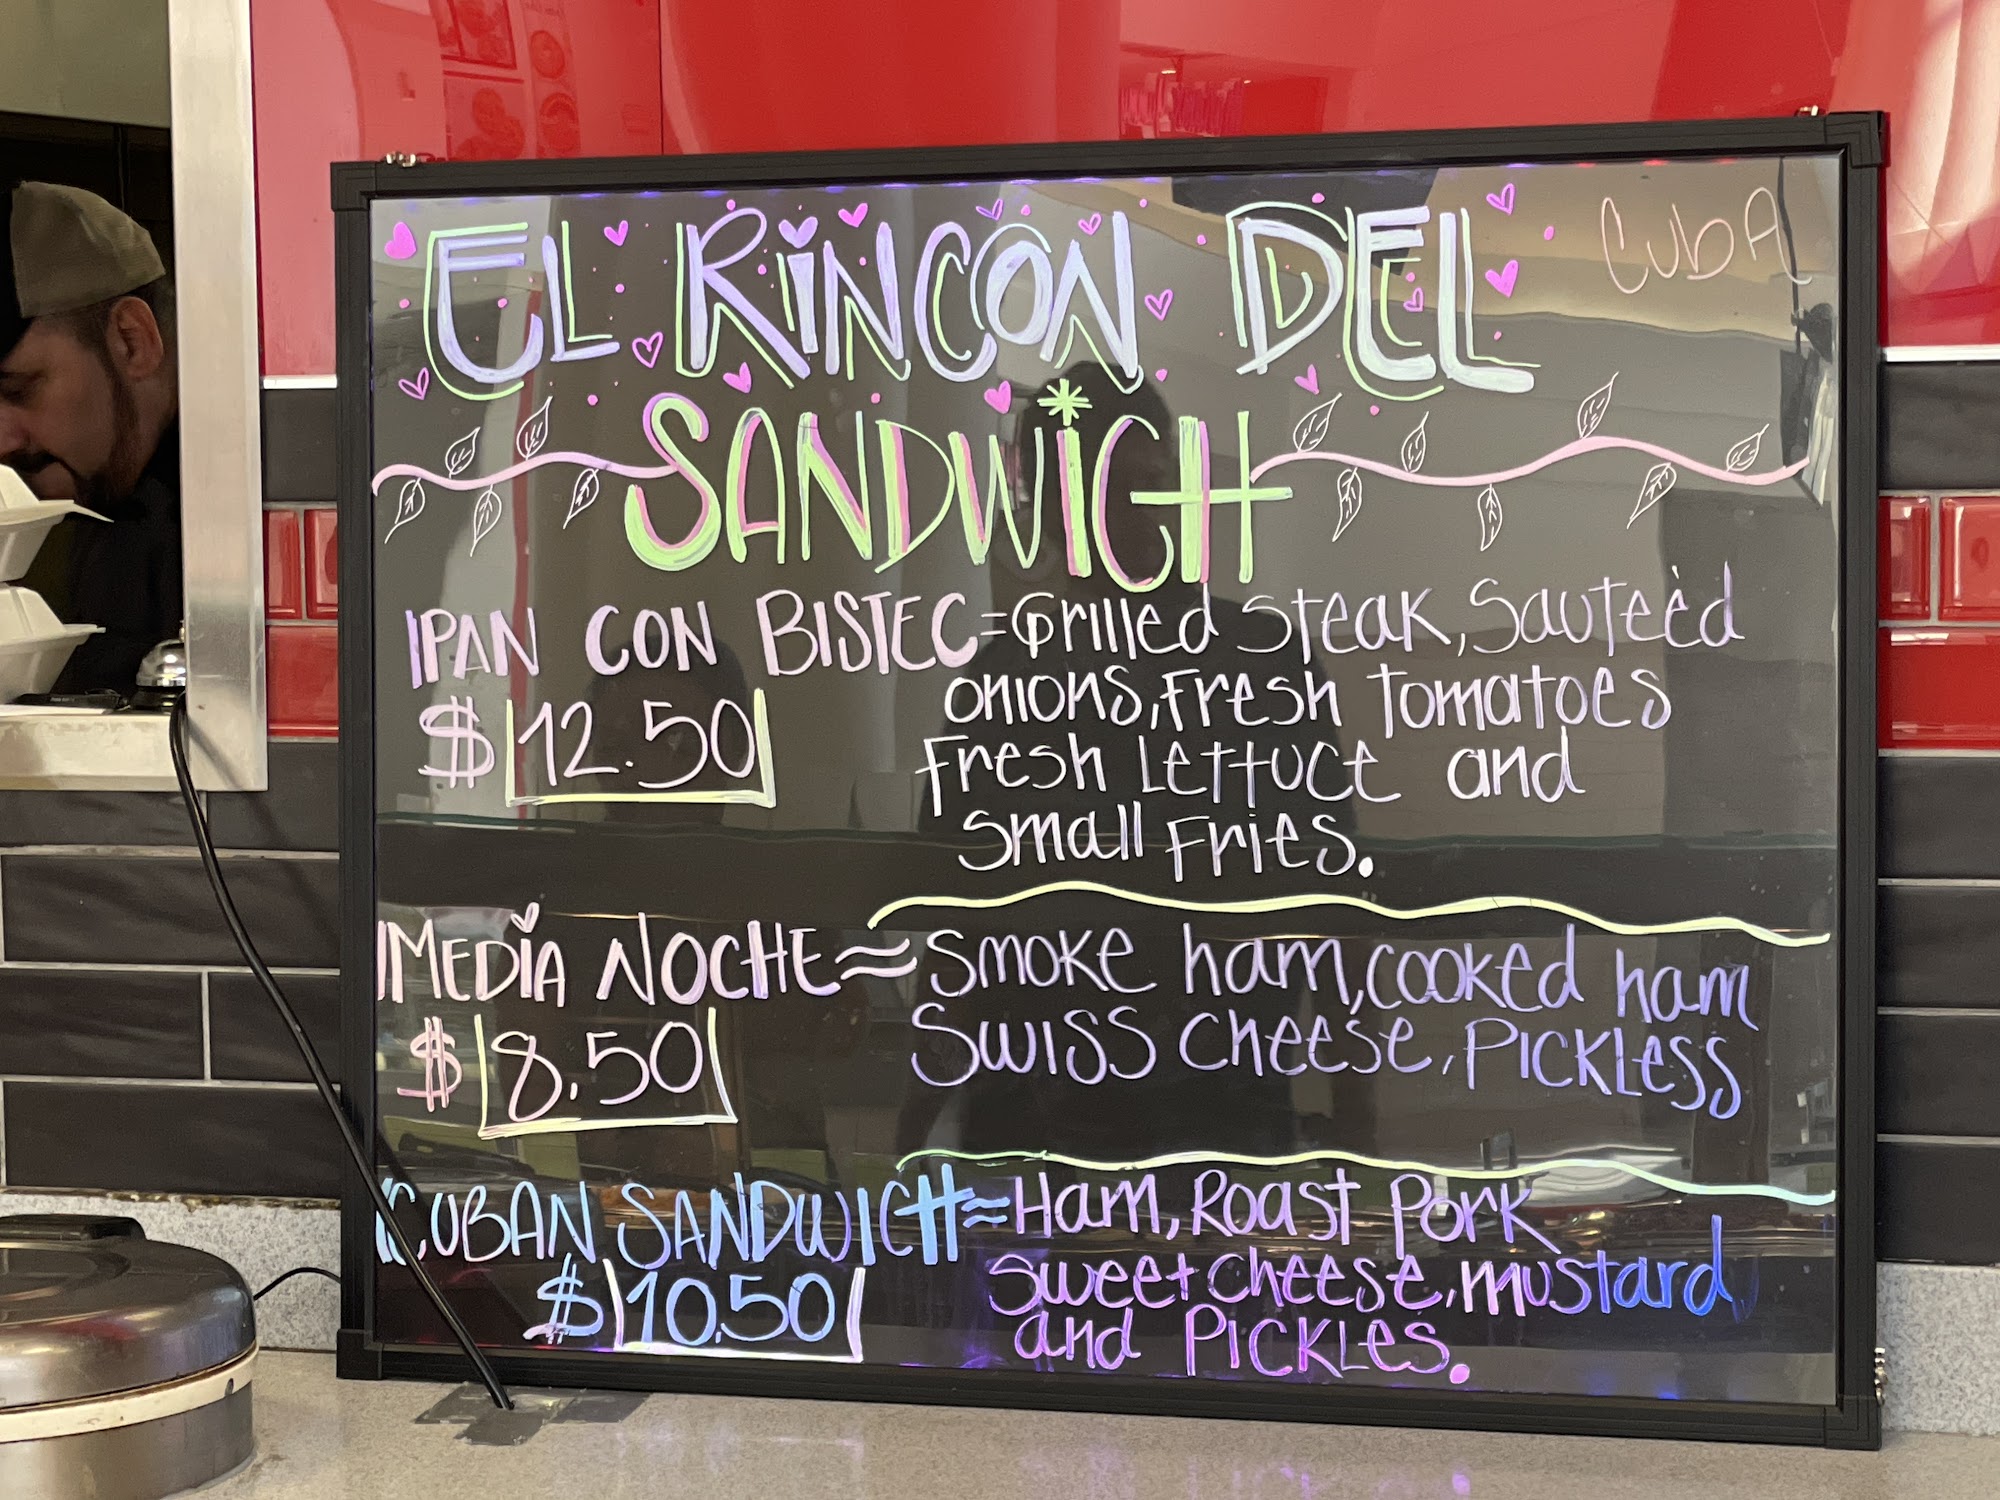 EL RINCON DEL
CubA
SANDWiCH
PAN CON BISTEC = Grilled Steak, Sauteèd
$ 12.50
onions, Fresh Tomatoes
Fresh Lettuce and
small Fries.
MEDiA NOCHE ≈ Smoke ham, cooked ham
$ 8.50
Swiss Cheese, Pickless
CUBAN SANDWICH ≈ Ham, Roast Pork
$ 10.50
Sweet Cheese, mustard
and Pickles.